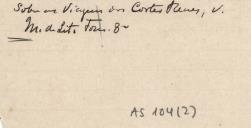 Sobre as Viagens dos Cortes Reaes, v.
M. de Litt. Tom. 8
AS 104(2)